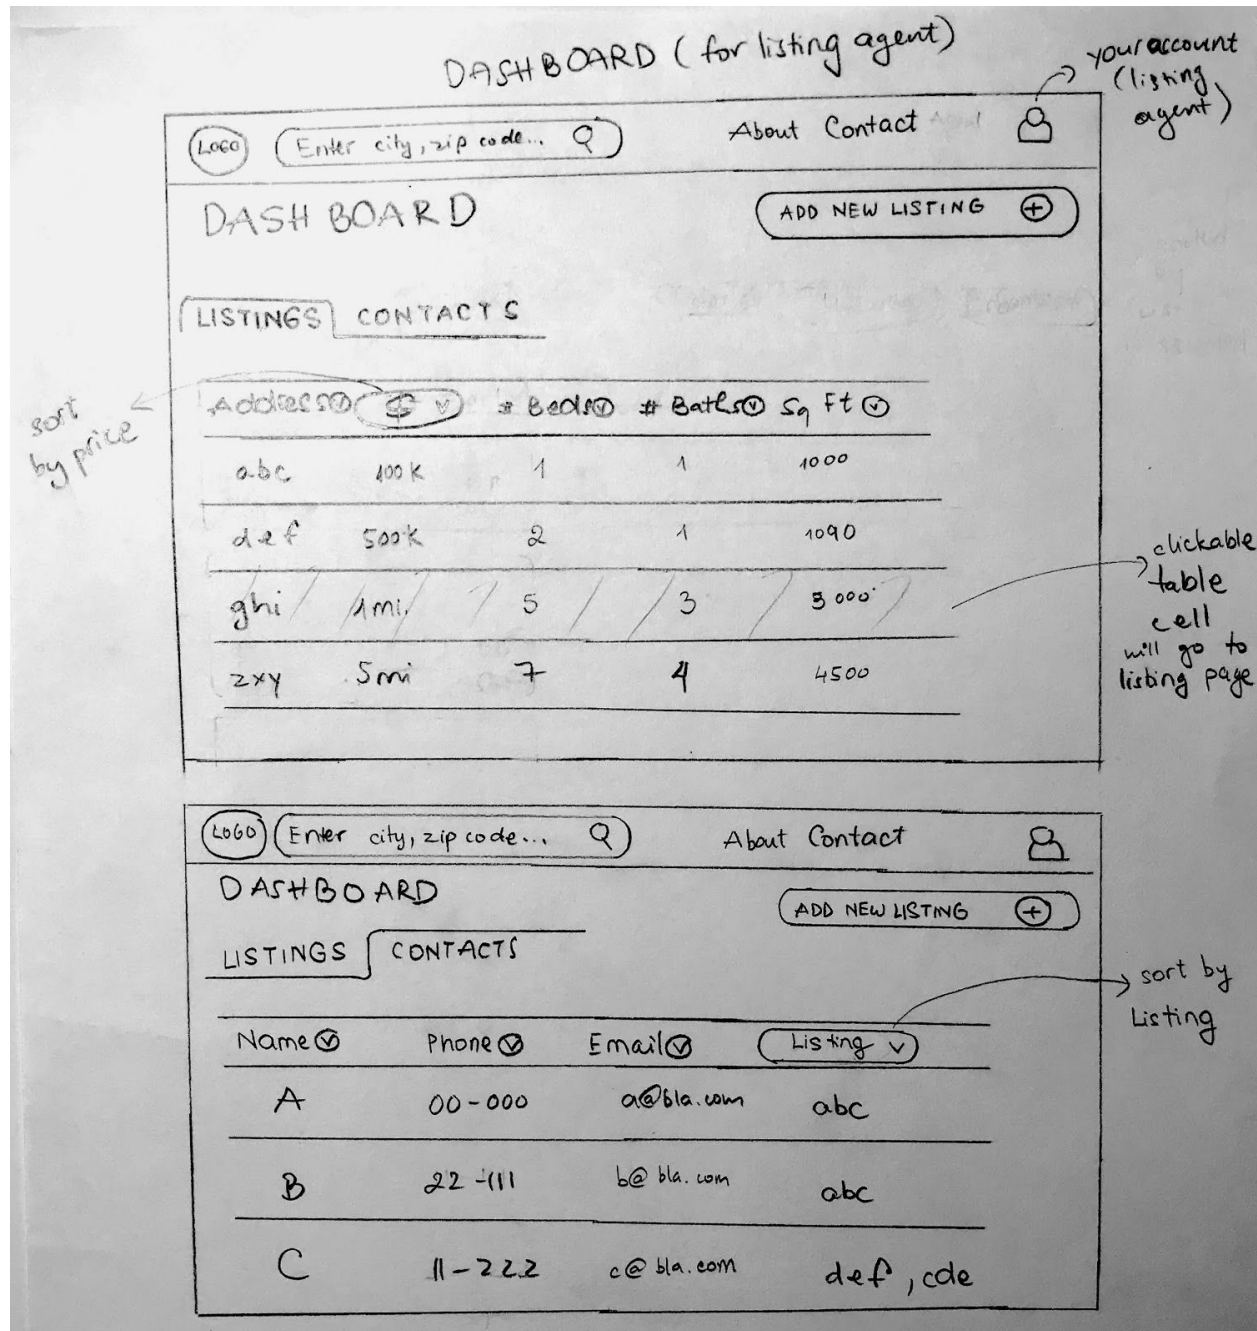 DASHBOARD (for listing agent)
your account
(listing
agent)
LOGO Enter city, zip code... About Contact
DASHBOARD ADD NEW LISTING +
LISTINGS CONTACTS
sort
by price
Address $ # Beds # Baths Sq Ft
abc 100K 1 1 1000
def 500K 2 1 1090
ghi 1mi. 5 3 3000
zxy 5mi 7 4 4500
clickable
table
cell
will go to
listing page
LOGO Enter city, zip code... About Contact
DASHBOARD
ADD NEW LISTING +
LISTINGS CONTACTS
sort by
Listing
Name Phone Email Listing
A 00-000 a@bla.com abc
B 22-111 b@bla.com abc
C 11-222 c@bla.com def, cde